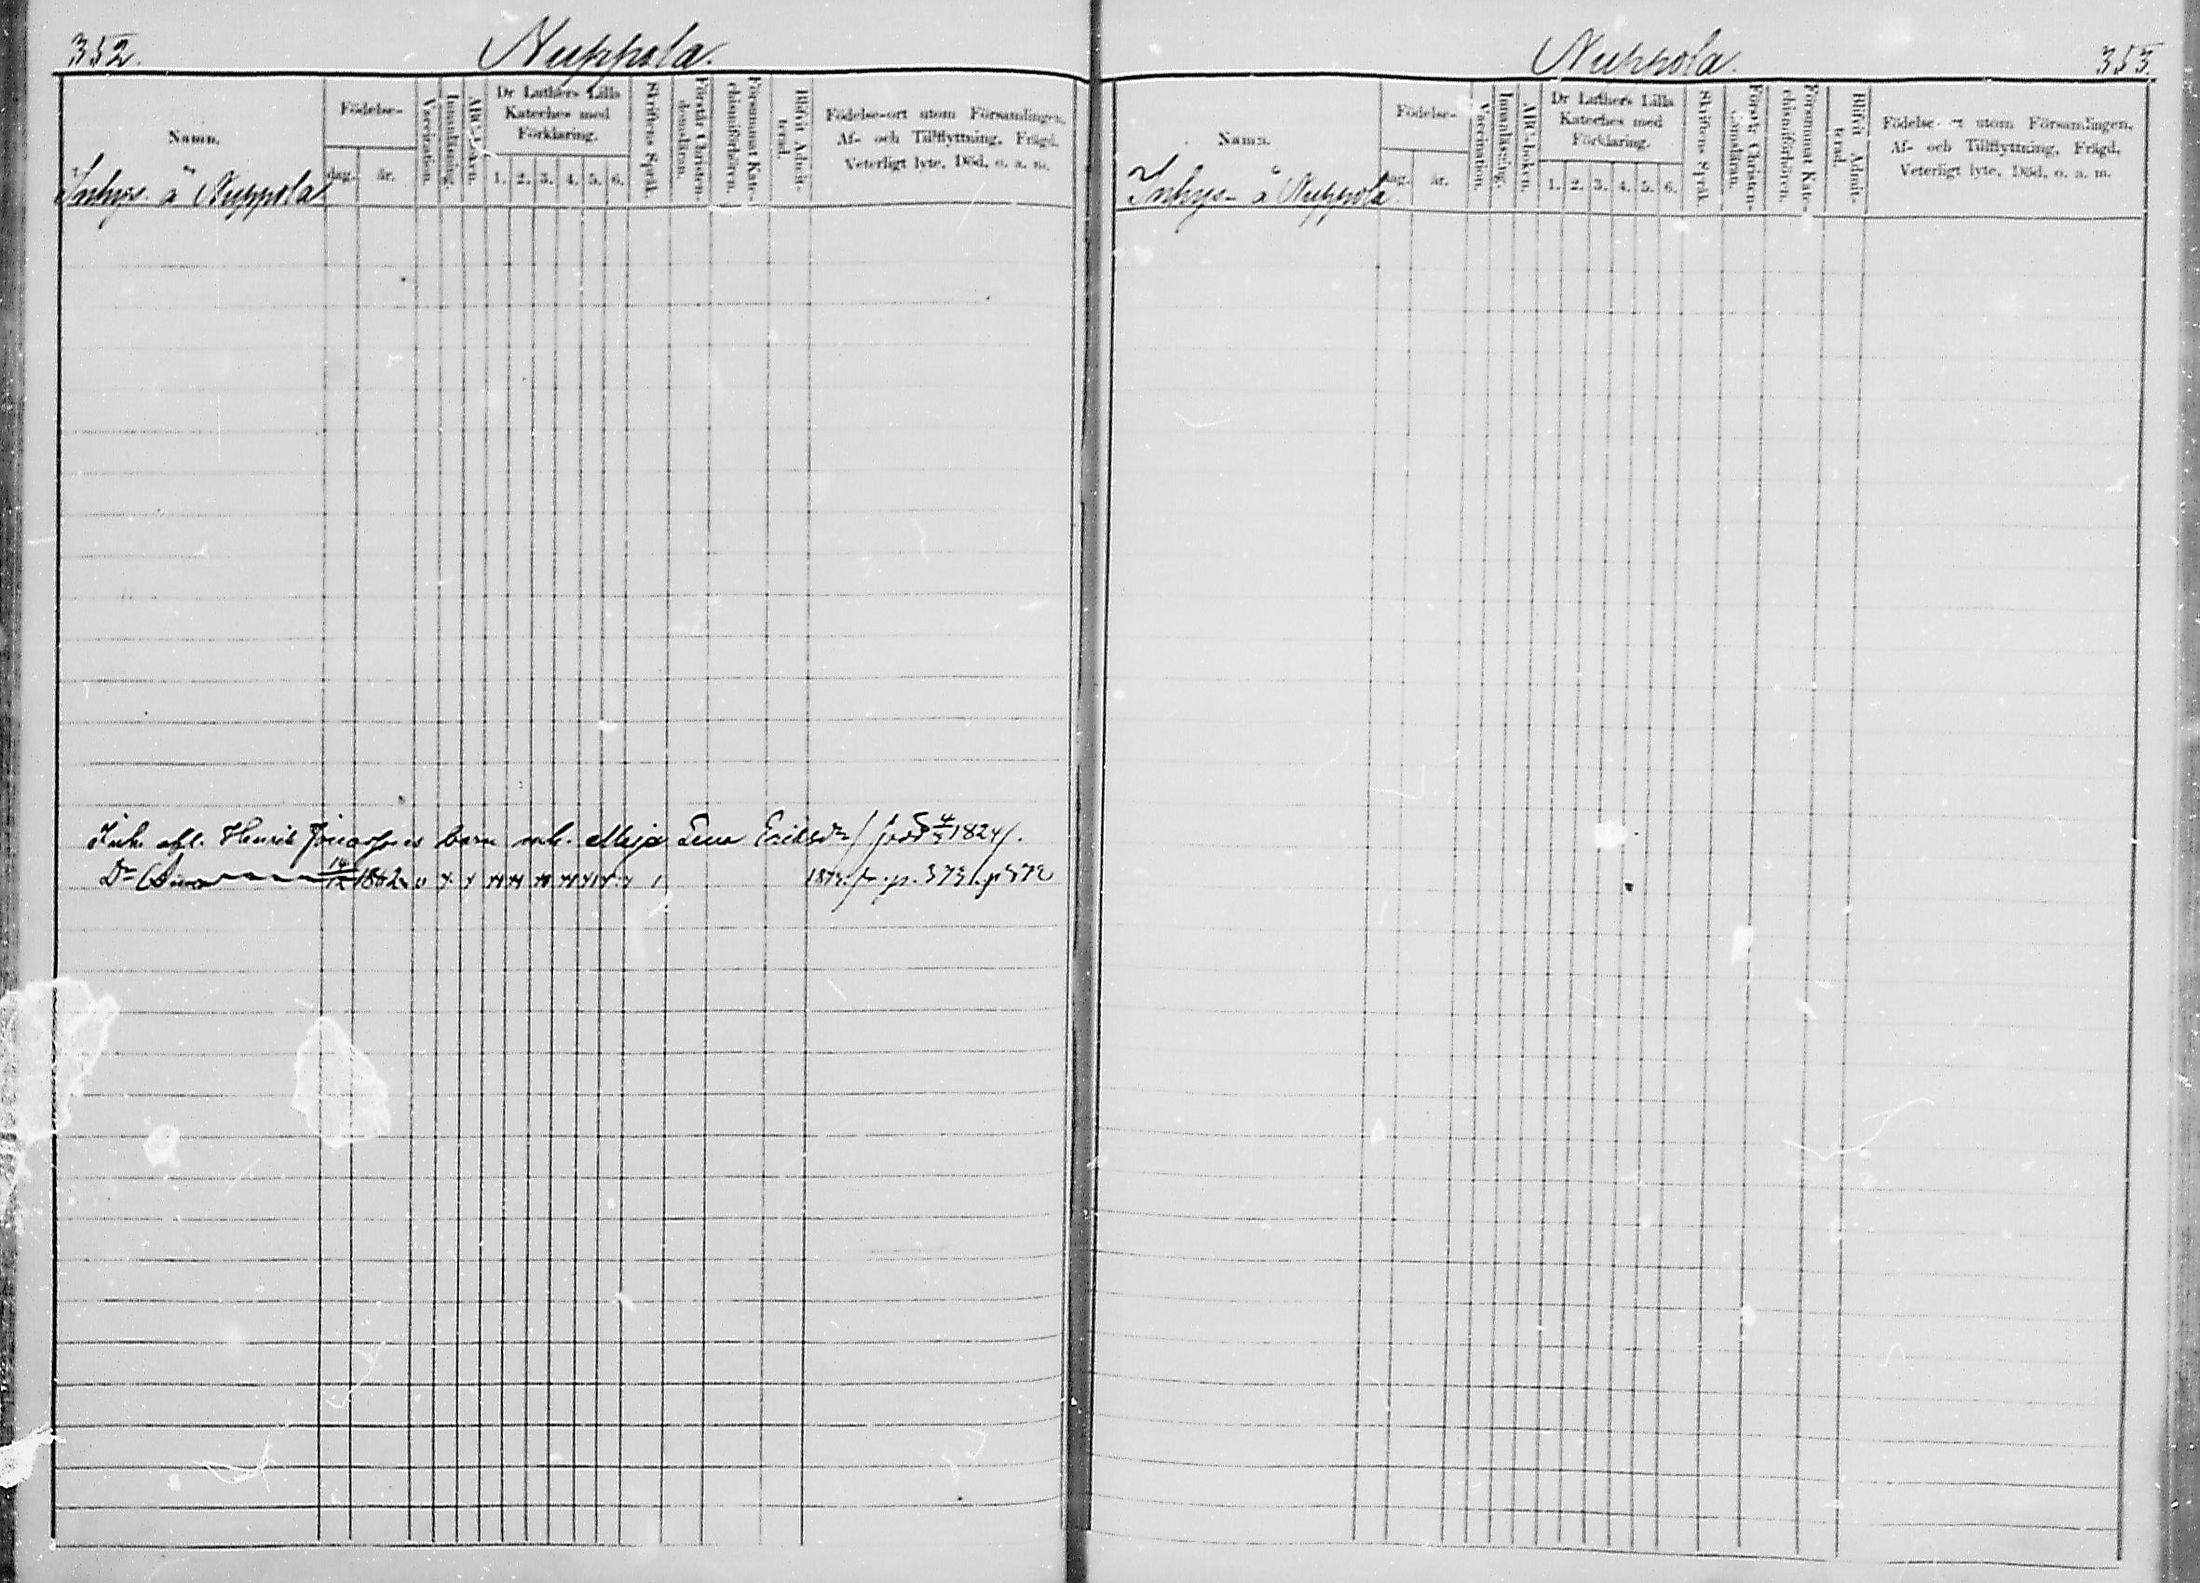 352.
Nuppola.
Namn.
Födelse-
dag.
år.
Vaccination.
Innanläsning.
ABC-boken.
Dr Luthers Lilla
Kateches med
Förklaring.
1. 2. 3. 4. 5. 6.
Skriftens Språk.
Förstår Christen-
domsläran.
Försummat Kate-
chismiförhören.
Blifvit Admit-
terad.
Födelse-ort utom Församlingen.
Af- och Tillflyttning. Frägd.
Veterligt lyte. Död, o. a. m.
Inhys. å Nuppola
Inh. afl. Henrik Jonassons barn m. Maja Lena Eriksdr / född 4/5 1824/.
Dr 14/12 1862
1873. p. 373. p 372
Nuppola.
353.
Namn.
Födelse-
dag.
år.
Vaccination.
Innanläsning.
ABC-boken.
Dr Luthers Lilla
Kateches med
Förklaring.
1. 2. 3. 4. 5. 6.
Skriftens Språk.
Förstår Christen-
domsläran.
Försummat Kate-
chismiförhören.
Blifvit Admit-
terad.
Födelse-ort utom Församlingen.
Af- och Tillflyttning. Frägd.
Veterligt lyte. Död, o. a. m.
Inhys- å Nuppola